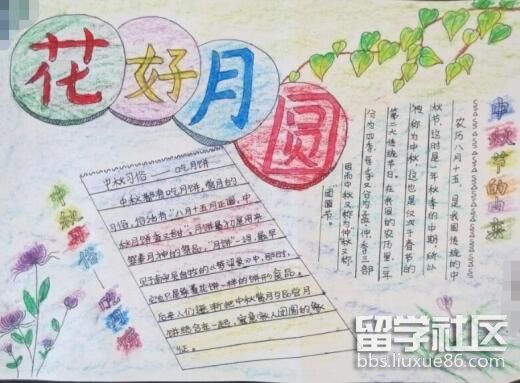 花好月圆
中秋习俗——吃月饼
中秋都有吃月饼,赏月的
习俗,俗话有:"八月十五月正圆,中
秋月饼香又甜"。月饼最初是用来
祭奉月神的祭品,"月饼"一词,最早
见于南宋吴自牧的《梦梁录》中,那时,
它也只是像菱花饼一样的饼形食品。
后来人们逐渐把中秋赏月与品尝月
饼结合在一起,寓意家人团圆的象
征。
中秋习俗—吃月饼
中秋节的由来
农历八月十五,是我国传统的中
秋节,这时是一年秋季的中期,所以
被称为中秋,这也是仅次于春节的
第二大传统节日。在我国的农历里,一年
分为四季,每季又分为孟、仲、季三部
因而中秋又称为"仲秋"又称
团圆节。
留学社区
bbs.liuxue86.com